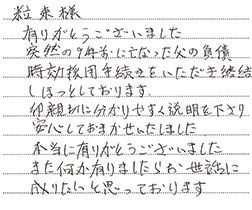 粒来様
有りがとうございました
突然の9年前に亡なった父の負債
時効援用手続きをいただき継結
しほっとしております。
御親切に分りやすく説明を下さり
安心しておまかせいたしました
本当に有りがとうございました
また何か有りましたらお世話に
成りたいと思っております